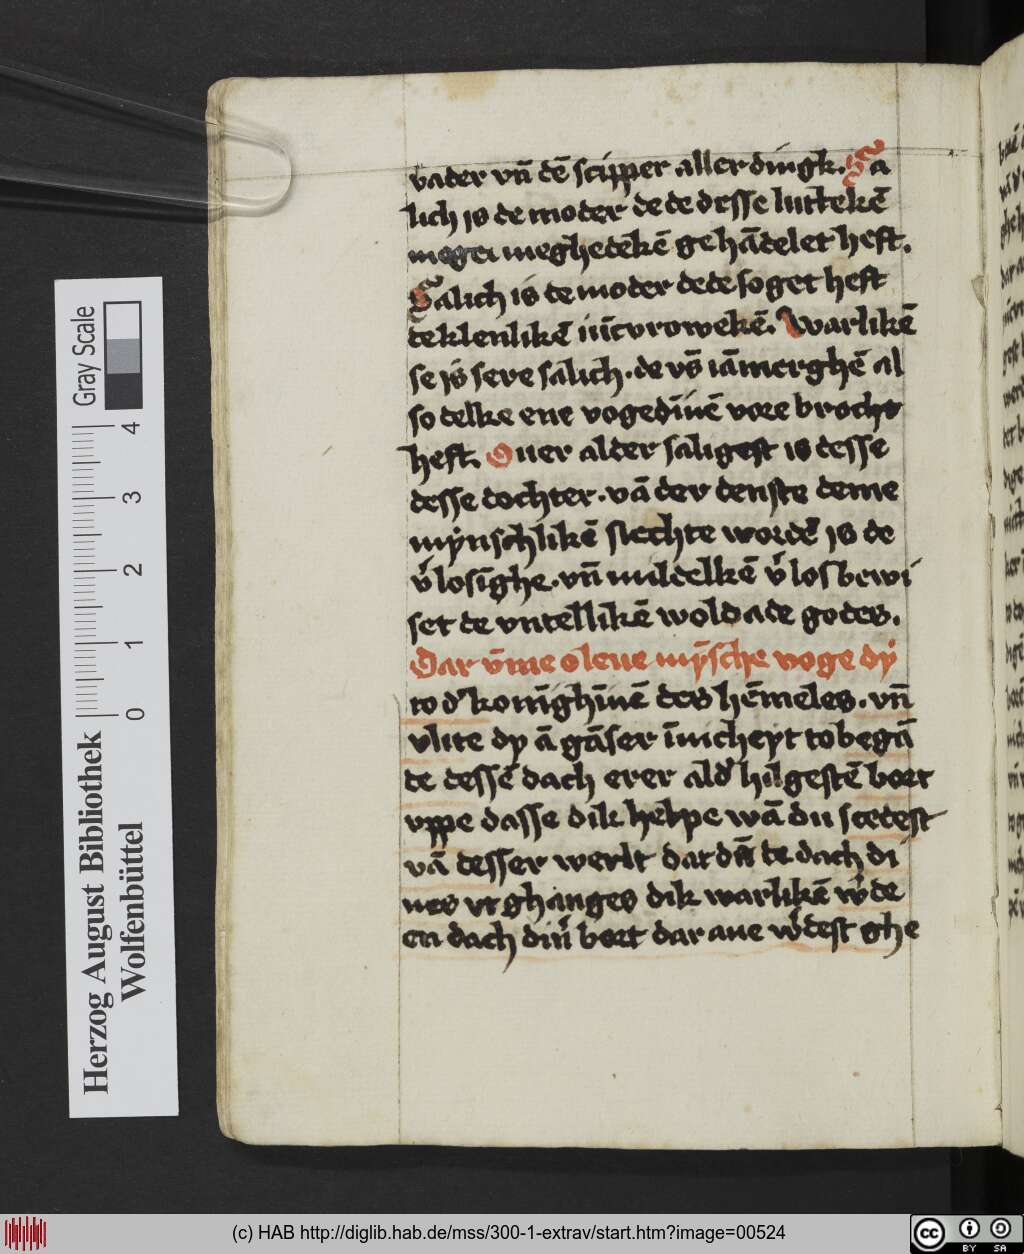 vader vn̄ dē scipper aller dingk. Sa
lich is de moder de de desse luttekē
meghedekē gehādelet heft.
Salich is de moder de de soget heft
de klenlikē iūcvrowekē. Warlikē
se is sere salich. de vs̄ iāmerghē al
so delke ene vogedīnē vore brocht
heft. Ouer alder saligest is desse
desse dochter. vā der denste deme
mynschlikē slechte wordē is de
v̓losīghe. vn̄ mildelkē v̓los bewi
set de vntellikē woldade godes.
Dar v̄me o leue mȳsche voge dy
to d̓ konīghīnē des hēmeles. vn̄
vlite dy ā gāser īnicheyt to begā
de dessē dach erer ald̓ hilgestē bort
vppe dasse dik helpe wā du scedest
vā desser werlt dat dā de dach di
nes vtghanges dik warlikē w̓de
en dach din̓ bort dar aue w̓dest ghe
Gray Scale
4
3
2
1
0
Herzog August Bibliothek
Wolfenbüttel
(c) HAB http://diglib.hab.de/mss/300-1-extrav/start.htm?image=00524
cc BY SA